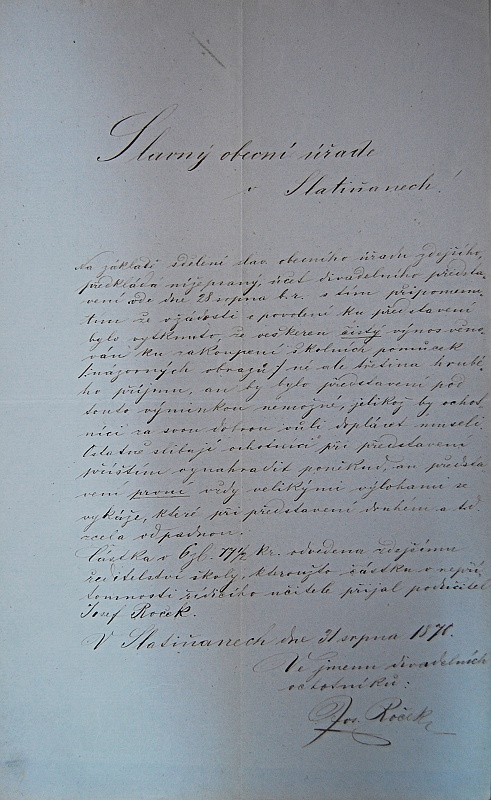 Slavný obecní úřade
v Slatiňanech!
Na základě sdělení slav. obecního úřadu zdejšího,
předkládá nížepsaný účet divadelního předsta-
vení ode dne 28 srpna b.r. s tím připomenu-
tím že v žádosti o povolení ku představení
bylo vytknuto, že veškeren čistý výnos věno-
ván ku zakoupení školních pomůcek
/:názorných obrazů:/ né ale třetina hrubé-
ho příjmu, an by bylo představení pod
touto výminkou nemožné, jelikož by ochot-
níci za svou dobrou vůli doplácet museli.
Ostatně slibují ochotníci při představení
příštím vynahradit poníkud, an předsta-
vení první vždy velikými výlohami se
vykáže, které při představení druhém a td.
zcela odpadnou.
Částka v 6 zl. 17½ kr. odvedena zdejšímu
ředitelství školy, kteroužto částku v nepří-
tomnosti řídícího učitele přijal podučitel
Josef Roček.
V Slatiňanech dne 31 srpna 1878.
Ve jmenu divadelních
ochotníků:
Jos. Roček